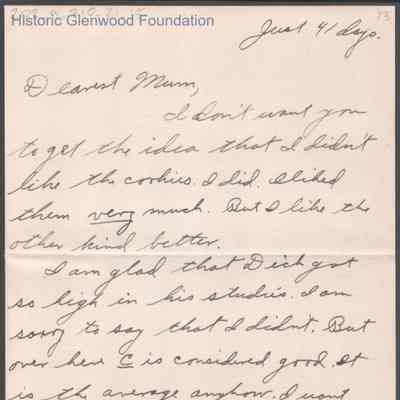 Historic Glenwood Foundation
13
Just 41 days.
Dearest Mum,
I don't want you
to get the idea that I didn't
like the cookies. I did. I liked
them very much. But I like the
other kind better.
I am glad that Dick got
so high in his studies. I am
sorry to say that I didn't. But
over here C is considered good. It
is the average anyhow. I want